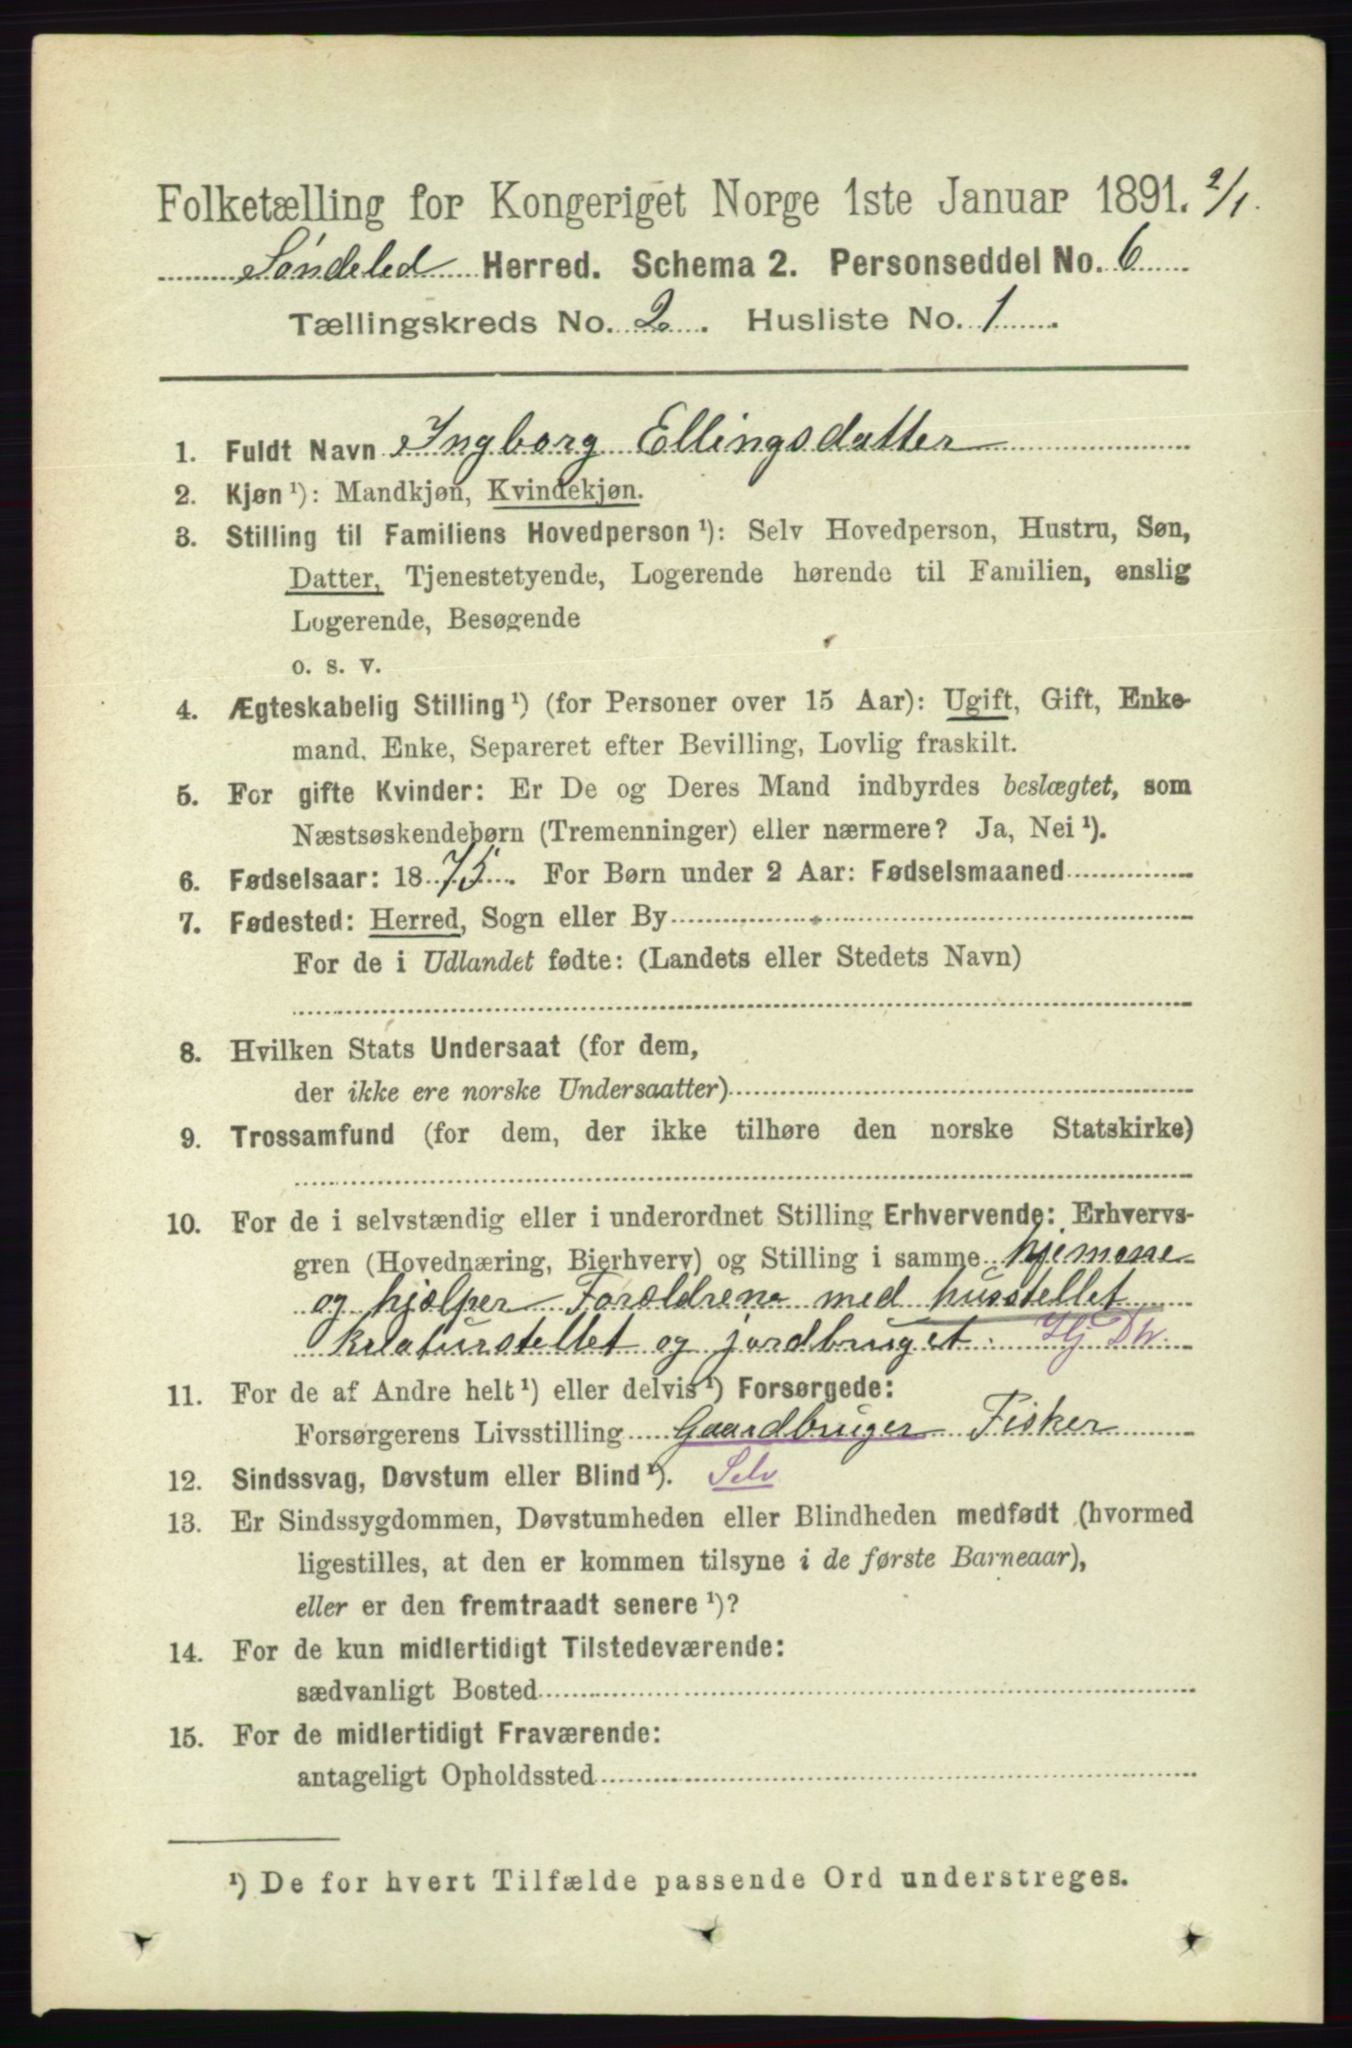 Folketælling for Kongeriget Norge 1ste Januar 1891. 2/1.
Søndeled Herred. Schema 2. Personseddel No. 6
Tællingskreds No. 2. Husliste No. 1.
1. Fuldt Navn Ingborg Ellingsdatter
2. Kjøn ¹): Mandkjøn, Kvindekjøn.
3. Stilling til Familiens Hovedperson ¹): Selv Hovedperson, Hustru, Søn,
Datter, Tjenestetyende, Logerende hørende til Familien, enslig
Logerende, Besøgende
o. s. v.
4. Ægteskabelig Stilling ¹) (for Personer over 15 Aar): Ugift, Gift, Enke-
mand, Enke, Separeret efter Bevilling, Lovlig fraskilt.
5. For gifte Kvinder: Er De og Deres Mand indbyrdes beslægtet, som
Næstsøskendebørn (Tremenninger) eller nærmere? Ja, Nei ¹).
6. Fødselsaar: 1875. For Børn under 2 Aar: Fødselsmaaned
7. Fødested: Herred, Sogn eller By
For de i Udlandet fødte: (Landets eller Stedets Navn)
8. Hvilken Stats Undersaat (for dem,
der ikke ere norske Undersaatter)
9. Trossamfund (for dem, der ikke tilhøre den norske Statskirke)
10. For de i selvstændig eller i underordnet Stilling Erhvervende: Erhvervs-
gren (Hovednæring, Bierhverv) og Stilling i samme hjemme
og hjælper Forældrene med husstellet
kreaturstellet og jordbruget. Hj Dtr.
11. For de af Andre helt ¹) eller delvis ¹) Forsørgede:
Forsørgerens Livsstilling Gaardbruger Fisker
12. Sindssvag, Døvstum eller Blind ¹). Selv
13. Er Sindssygdommen, Døvstumheden eller Blindheden medfødt (hvormed
ligestilles, at den er kommen tilsyne i de første Barneaar),
eller er den fremtraadt senere ¹)?
14. For de kun midlertidigt Tilstedeværende:
sædvanligt Bosted
15. For de midlertidigt Fraværende:
antageligt Opholdssted
¹) De for hvert Tilfælde passende Ord understreges.